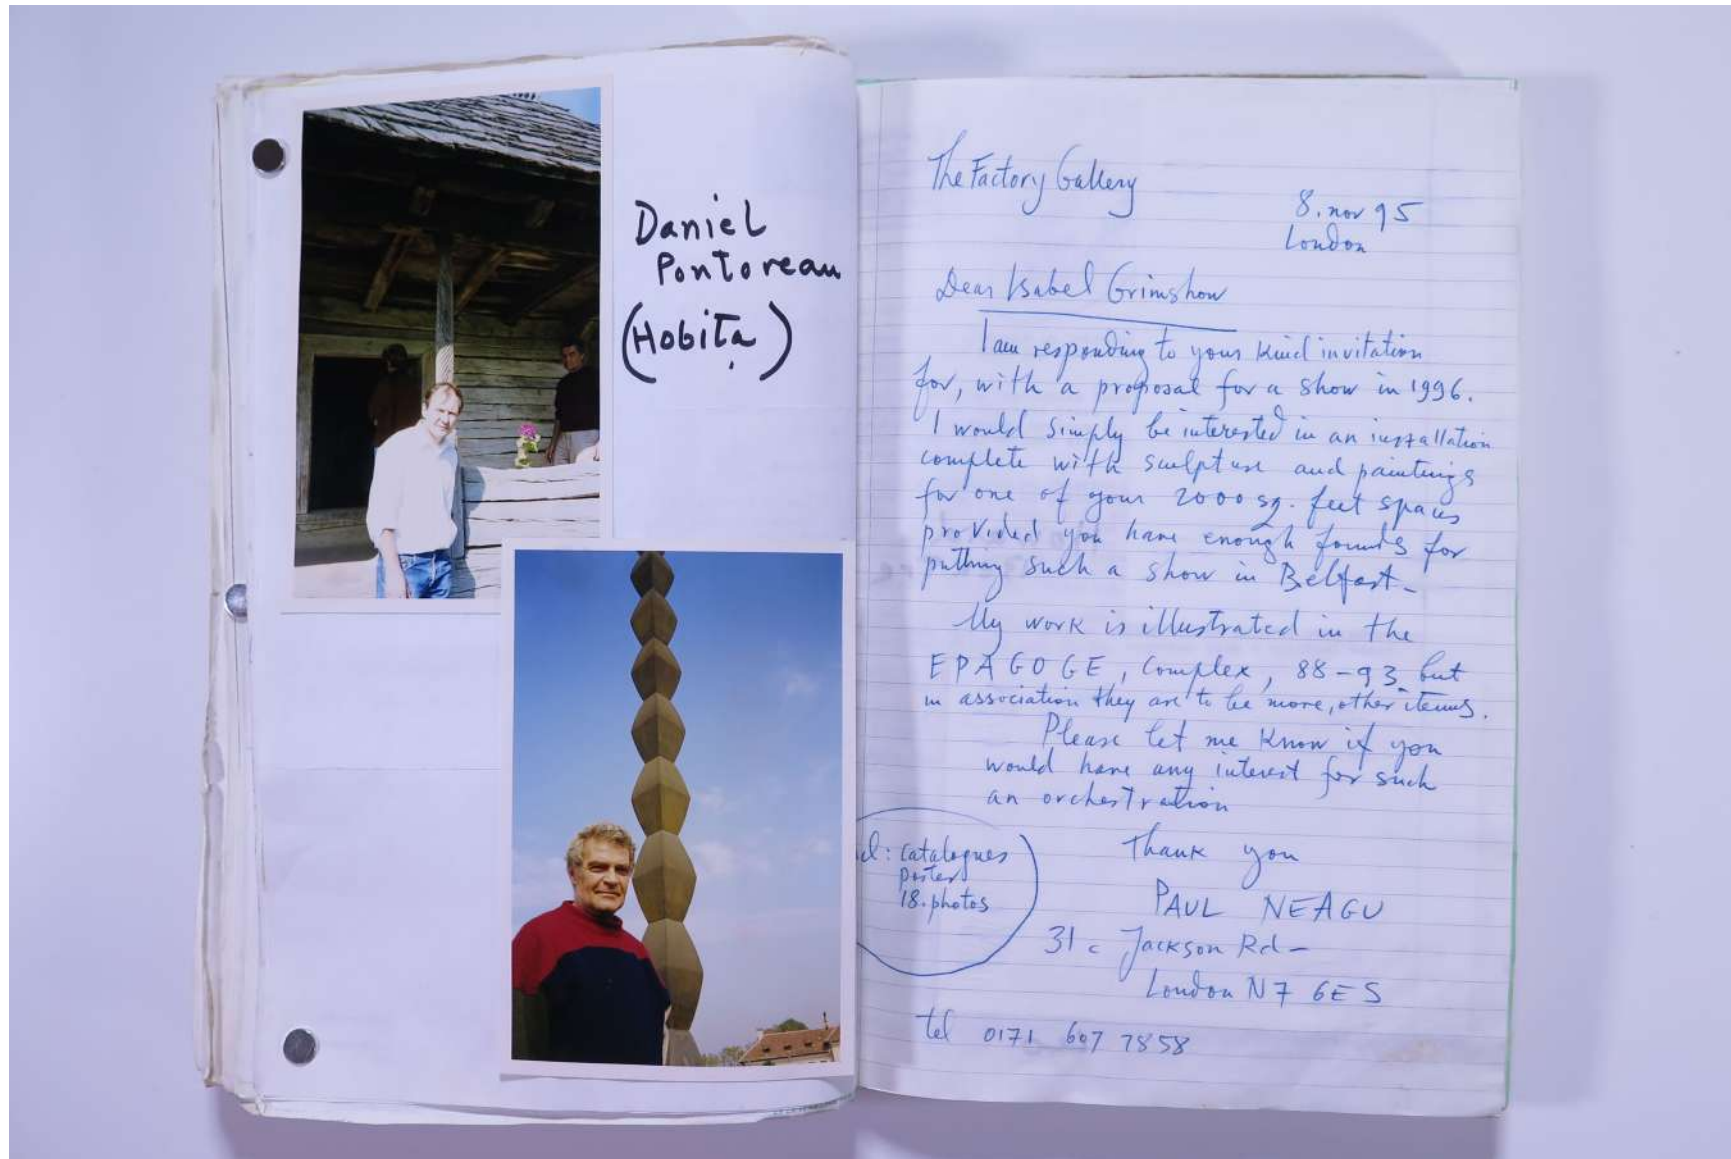 Daniel
Pontoreau
(Hobița)
The Factory Gallery
8. nov 95
London
Dear Isabel Grimshow
I am responding to your kind invitation
for, with a proposal for a show in 1996.
I would simply be interested in an installation
complete with sculpture and paintings
for one of your 2000 sq. feet spaces
provided you have enough founds for
putting such a show in Belfast -
My work is illustrated in the
EPAGOGE, Complex, 88-93 but
in association they are to be more, other items.
Please let me know if you
would have any interest for such
an orchestration
catalogues
poster
18. photos
Thank you
PAUL NEAGU
31 c Jackson Rd -
London N7 6ES
tel 0171 607 7858